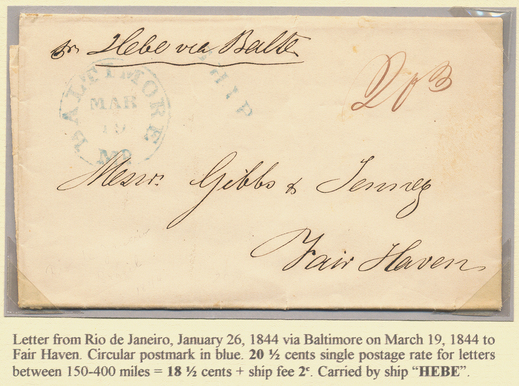 pr. Hebe via Balto
SHIP
BALTIMORE
MAR
19
Md.
Messrs. Gibbs & Jenney
Fair Haven
Letter from Rio de Janeiro, January 26, 1844 via Baltimore on March 19, 1844 to
Fair Haven. Circular postmark in blue. 20 ½ cents single postage rate for letters
between 150-400 miles = 18 ½ cents + ship fee 2ᶜ. Carried by ship “HEBE”.